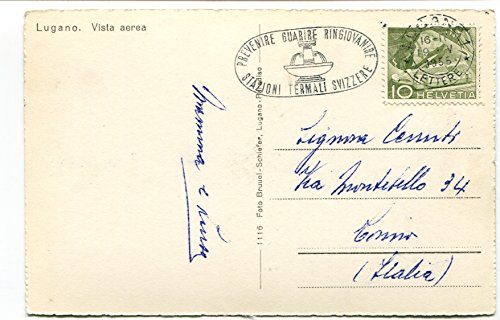 Lugano. Vista aerea
PREVENIRE GUARIRE RINGIOVANIRE
STAZIONI TERMALI SVIZZERE
LUGANO 1
16-17
1955
LETTERE
10 HELVETIA
Mamma e
1116 Foto Brunel-Schiefer, Lugano-Paradiso
Signora Cerruti
Via Montebello 34
Torino
(Italia)